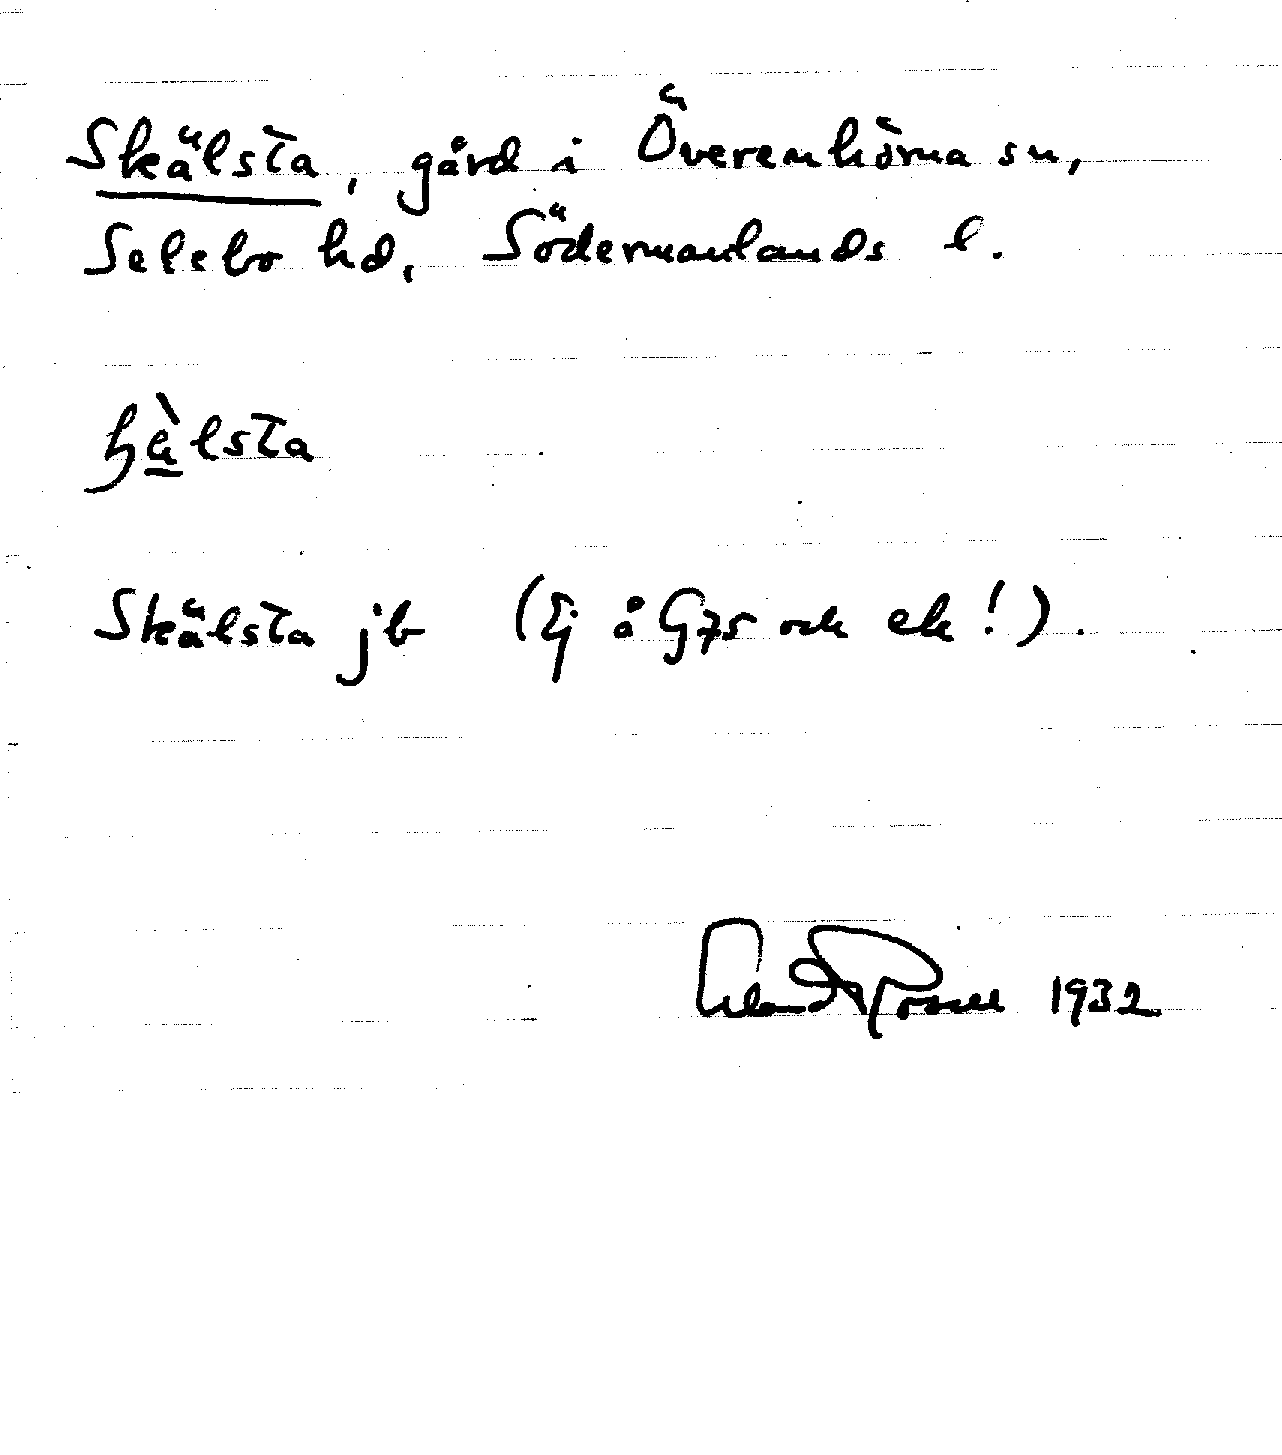 Skälsta, gård i Överenhörna sn,
Selebo hd, Södermanlands l.
Skälsta jb (Ej å G75 och ek!).
1932